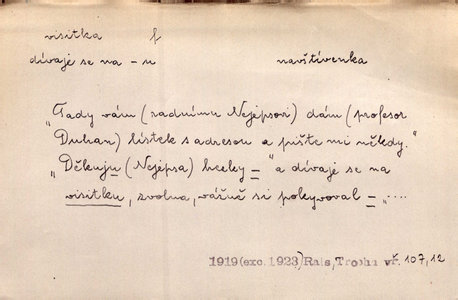 visitka f
dívaje se na – u navštívenka
"Tady vám (radnímu Nejepsovi) dám (profesor
Duhan) lístek s adresou a pište mi někdy."
"Děkuju (Nejepsa) hezky = " a dívaje se na
visitku, zvolna, vážně si pokyvoval = "....
1919 (exc. 1923) Rais, Trochu vř. 107,12